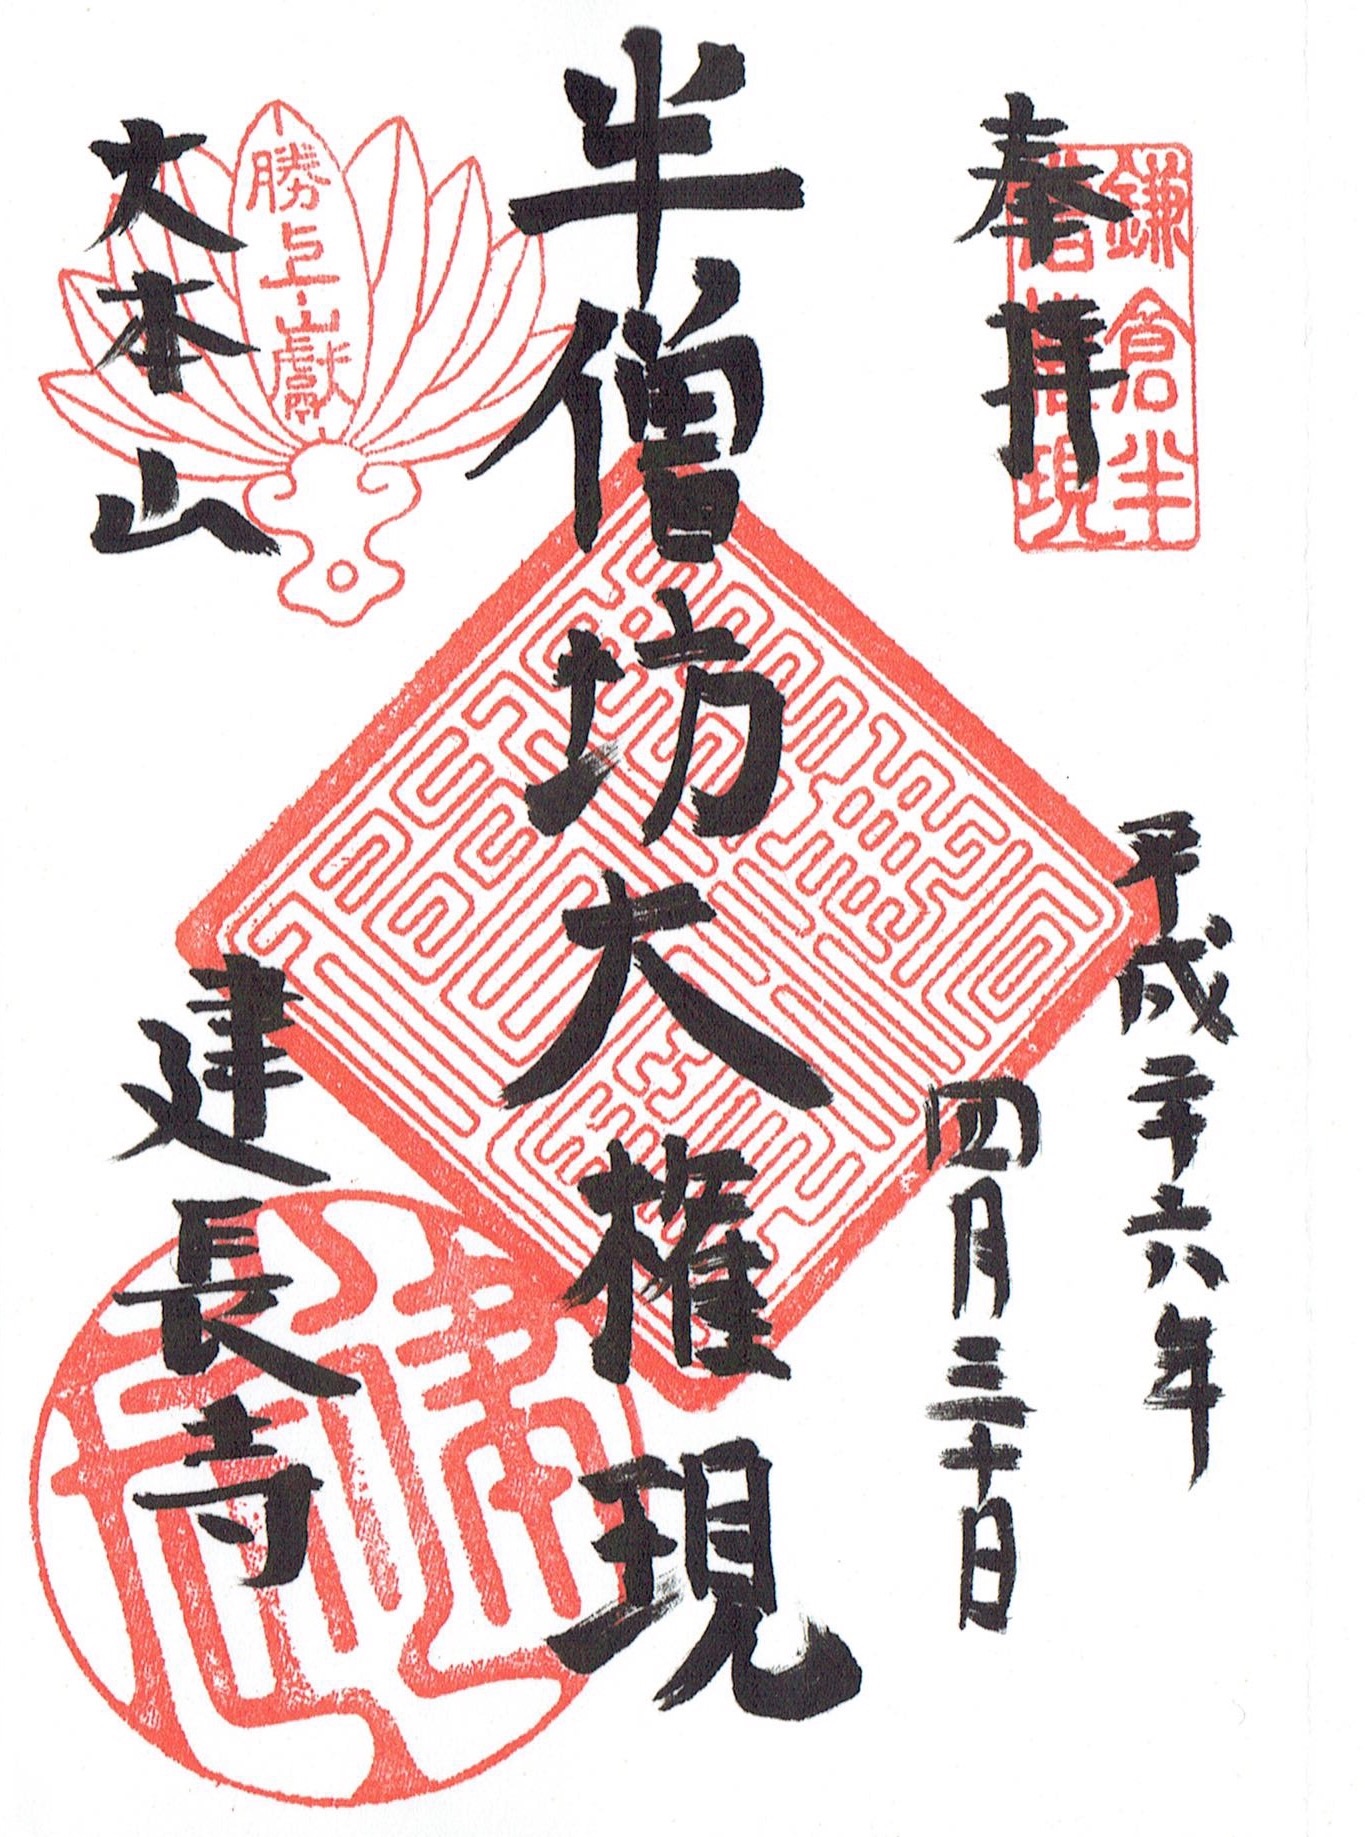 奉拝
鎌倉半
僧坊権現
平成二十六年
四月三十日
半僧坊大権現
勝上山獻
大本山
建長寺